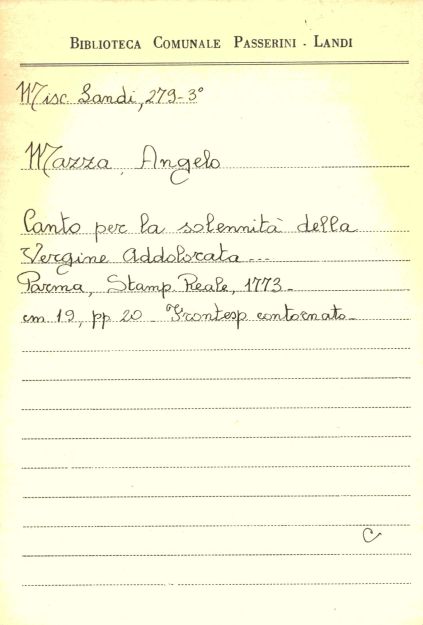 BIBLIOTECA COMUNALE PASSERINI - LANDI
Misc. Landi, 279-3°
Mazza, Angelo
Canto per la solennità della
Vergine Addolorata ...
Parma, Stamp. Reale, 1773 -
cm 19, pp 20 - Frontesp. contornato -
C